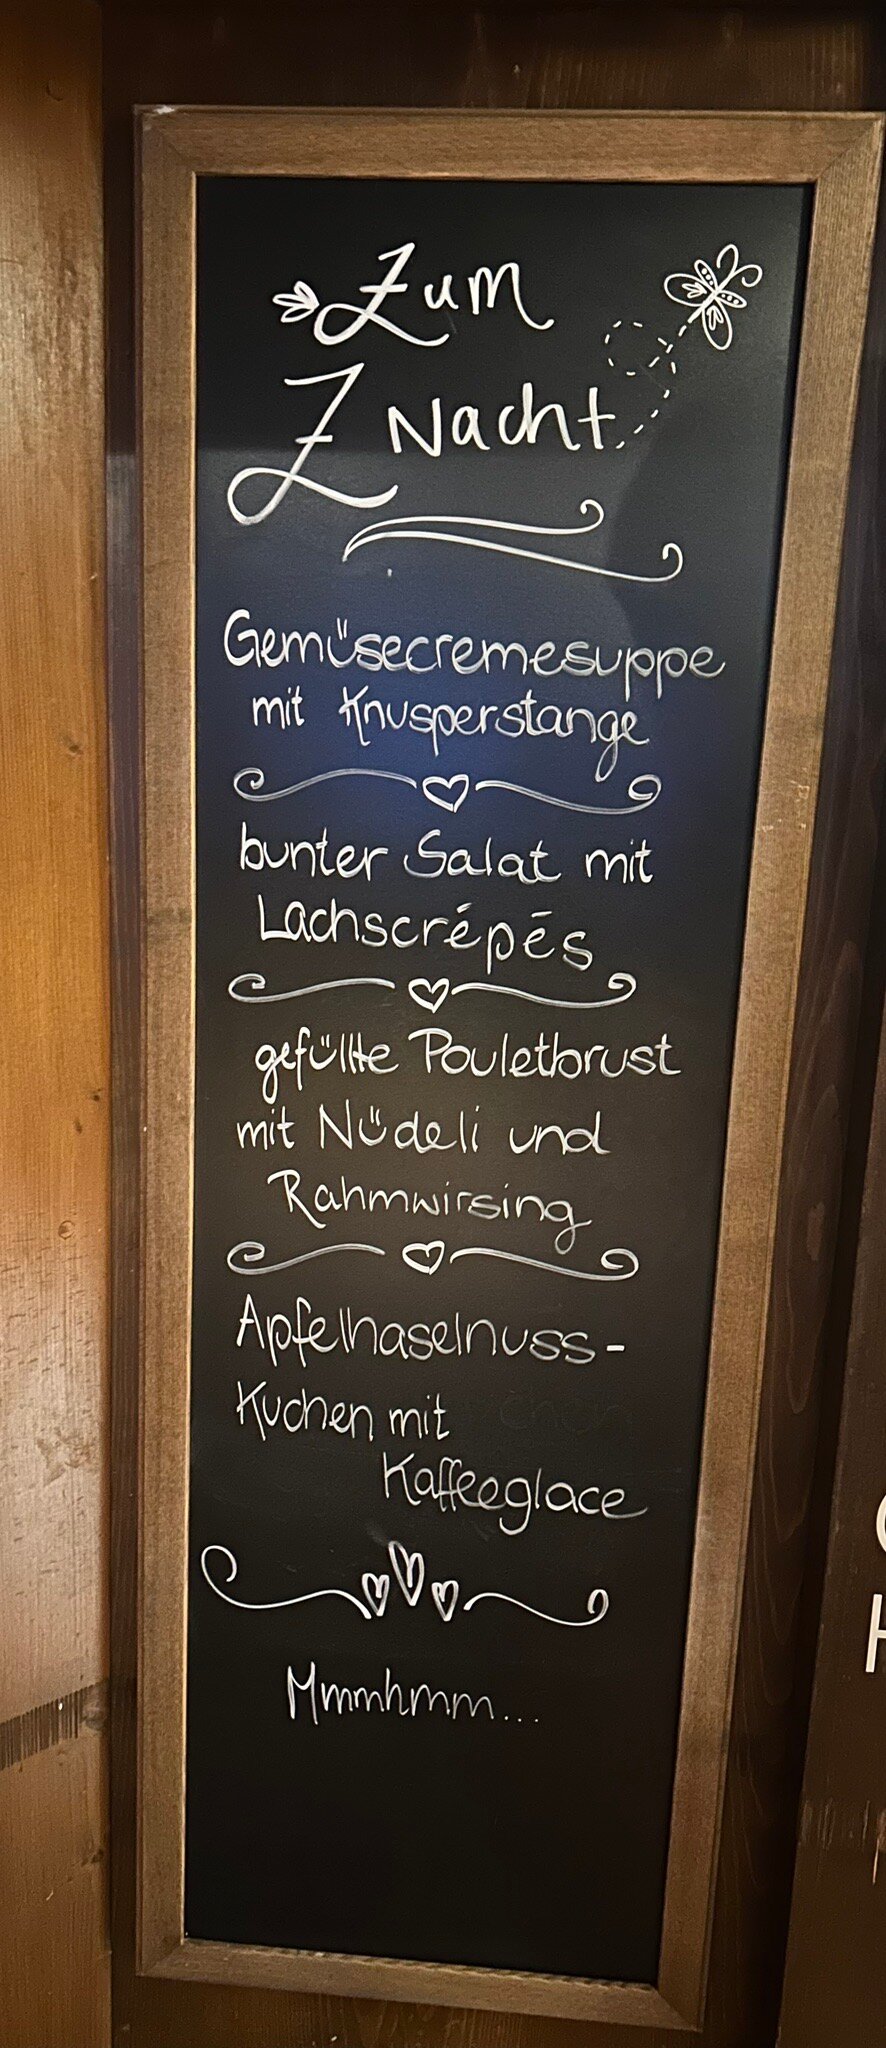 Zum
Z Nacht
Gemüsecremesuppe
mit Knusperstange
bunter Salat mit
Lachscrépēs
gefüllte Pouletbrust
mit Nüdeli und
Rahmwirsing
Apfelhaselnuss-
Kuchen mit
Kaffeeglace
Mmmhmm...